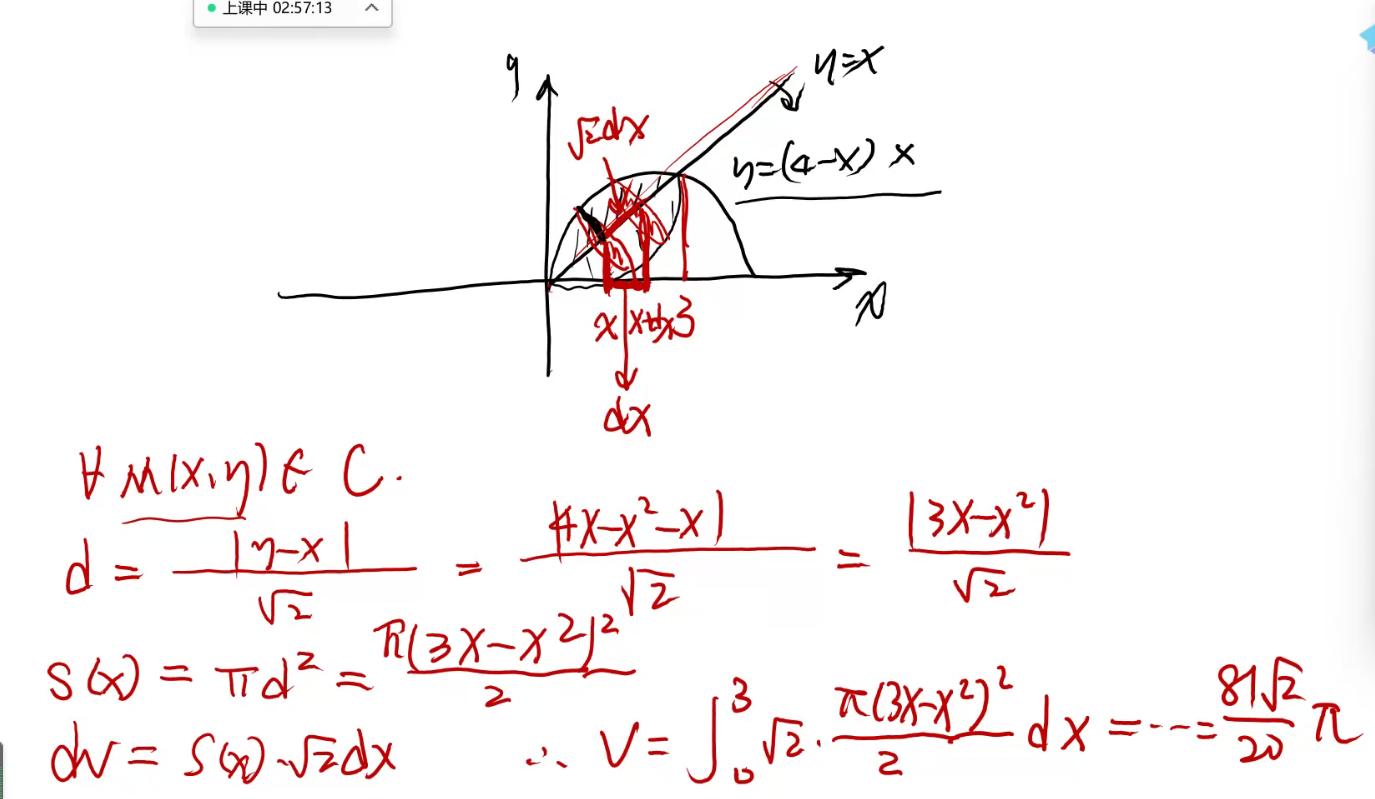 上课中 02:57:13
y
y=x
√2dx
y=(4-x) x
x x+dx 3
x
dx
∀ M(x,y)∈ C.
d = |y-x| / √2 = |4x-x²-x| / √2 = |3x-x²| / √2
S(x) = πd² = π(3x-x²)² / 2
dv = S(x)·√2dx ∴ V = ∫₀³ √2 · π(3x-x²)² / 2 dx = ··· = 81√2 / 20 π